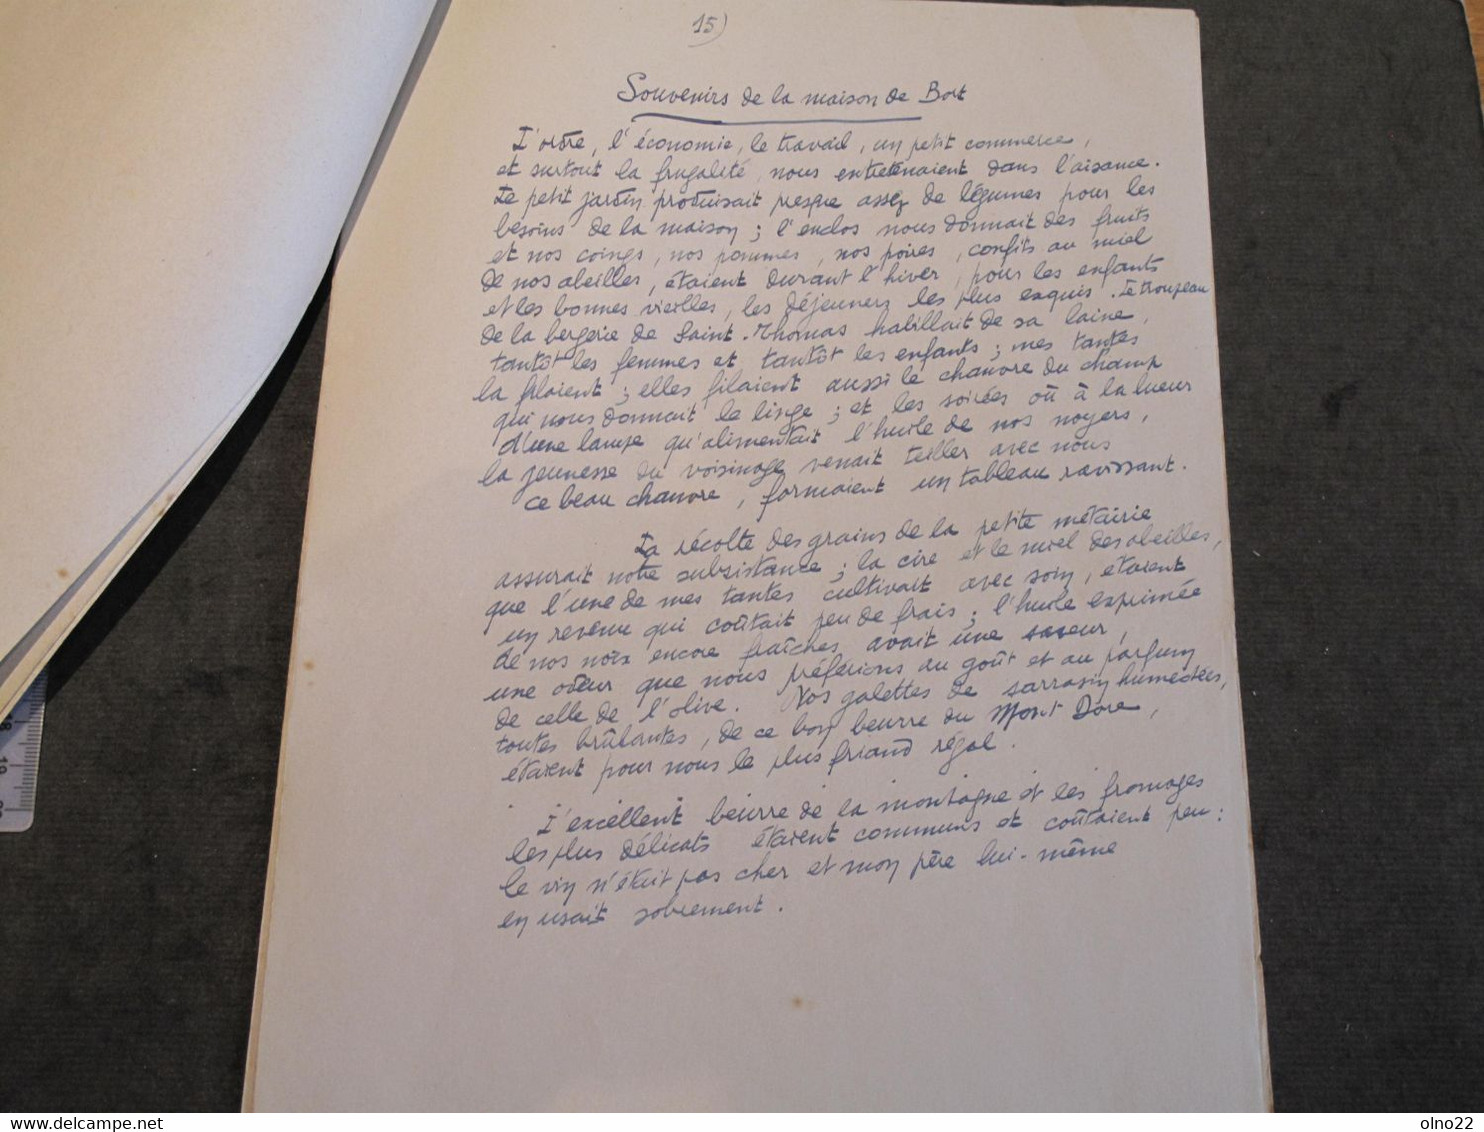 15)
Souvenirs de la maison de Bort
L'ordre, l'économie, le travail, un petit commerce,
et surtout la frugalité, nous entretenaient dans l'aisance.
Le petit jardin produisait presque assez de légumes pour les
besoins de la maison ; l'enclos nous donnait des fruits
et nos coings, nos pommes, nos poires, confits au miel
de nos abeilles, étaient durant l'hiver, pour les enfants
et les bonnes vieilles, les déjeuners les plus exquis. Le troupeau
de la bergerie de Saint-Thomas habillait de sa laine,
tantôt les femmes et tantôt les enfants ; mes tantes
la filaient ; elles filaient aussi le chanvre du champ
qui nous donnait le linge ; et les soirées où à la lueur
d'une lampe qu'alimentait l'huile de nos noyers,
la jeunesse du voisinage venait teiller avec nous
ce beau chanvre, formaient un tableau ravissant.
La récolte des grains de la petite métairie
assurait notre subsistance ; la cire et le miel des abeilles,
que l'une de mes tantes cultivait avec soin, étaient
un revenu qui coûtait peu de frais ; l'huile exprimée
de nos noix encore fraîches avait une saveur,
une odeur que nous préférions au goût et au parfum
de celle de l'olive. Nos galettes de sarrasin humectées,
toutes brûlantes, de ce bon beurre du Mont Dore,
étaient pour nous le plus friand régal.
L'excellent beurre de la montagne et les fromages
les plus délicats étaient communs et coûtaient peu :
le vin n'était pas cher et mon père lui-même
en usait sobrement.
18
19
olno22